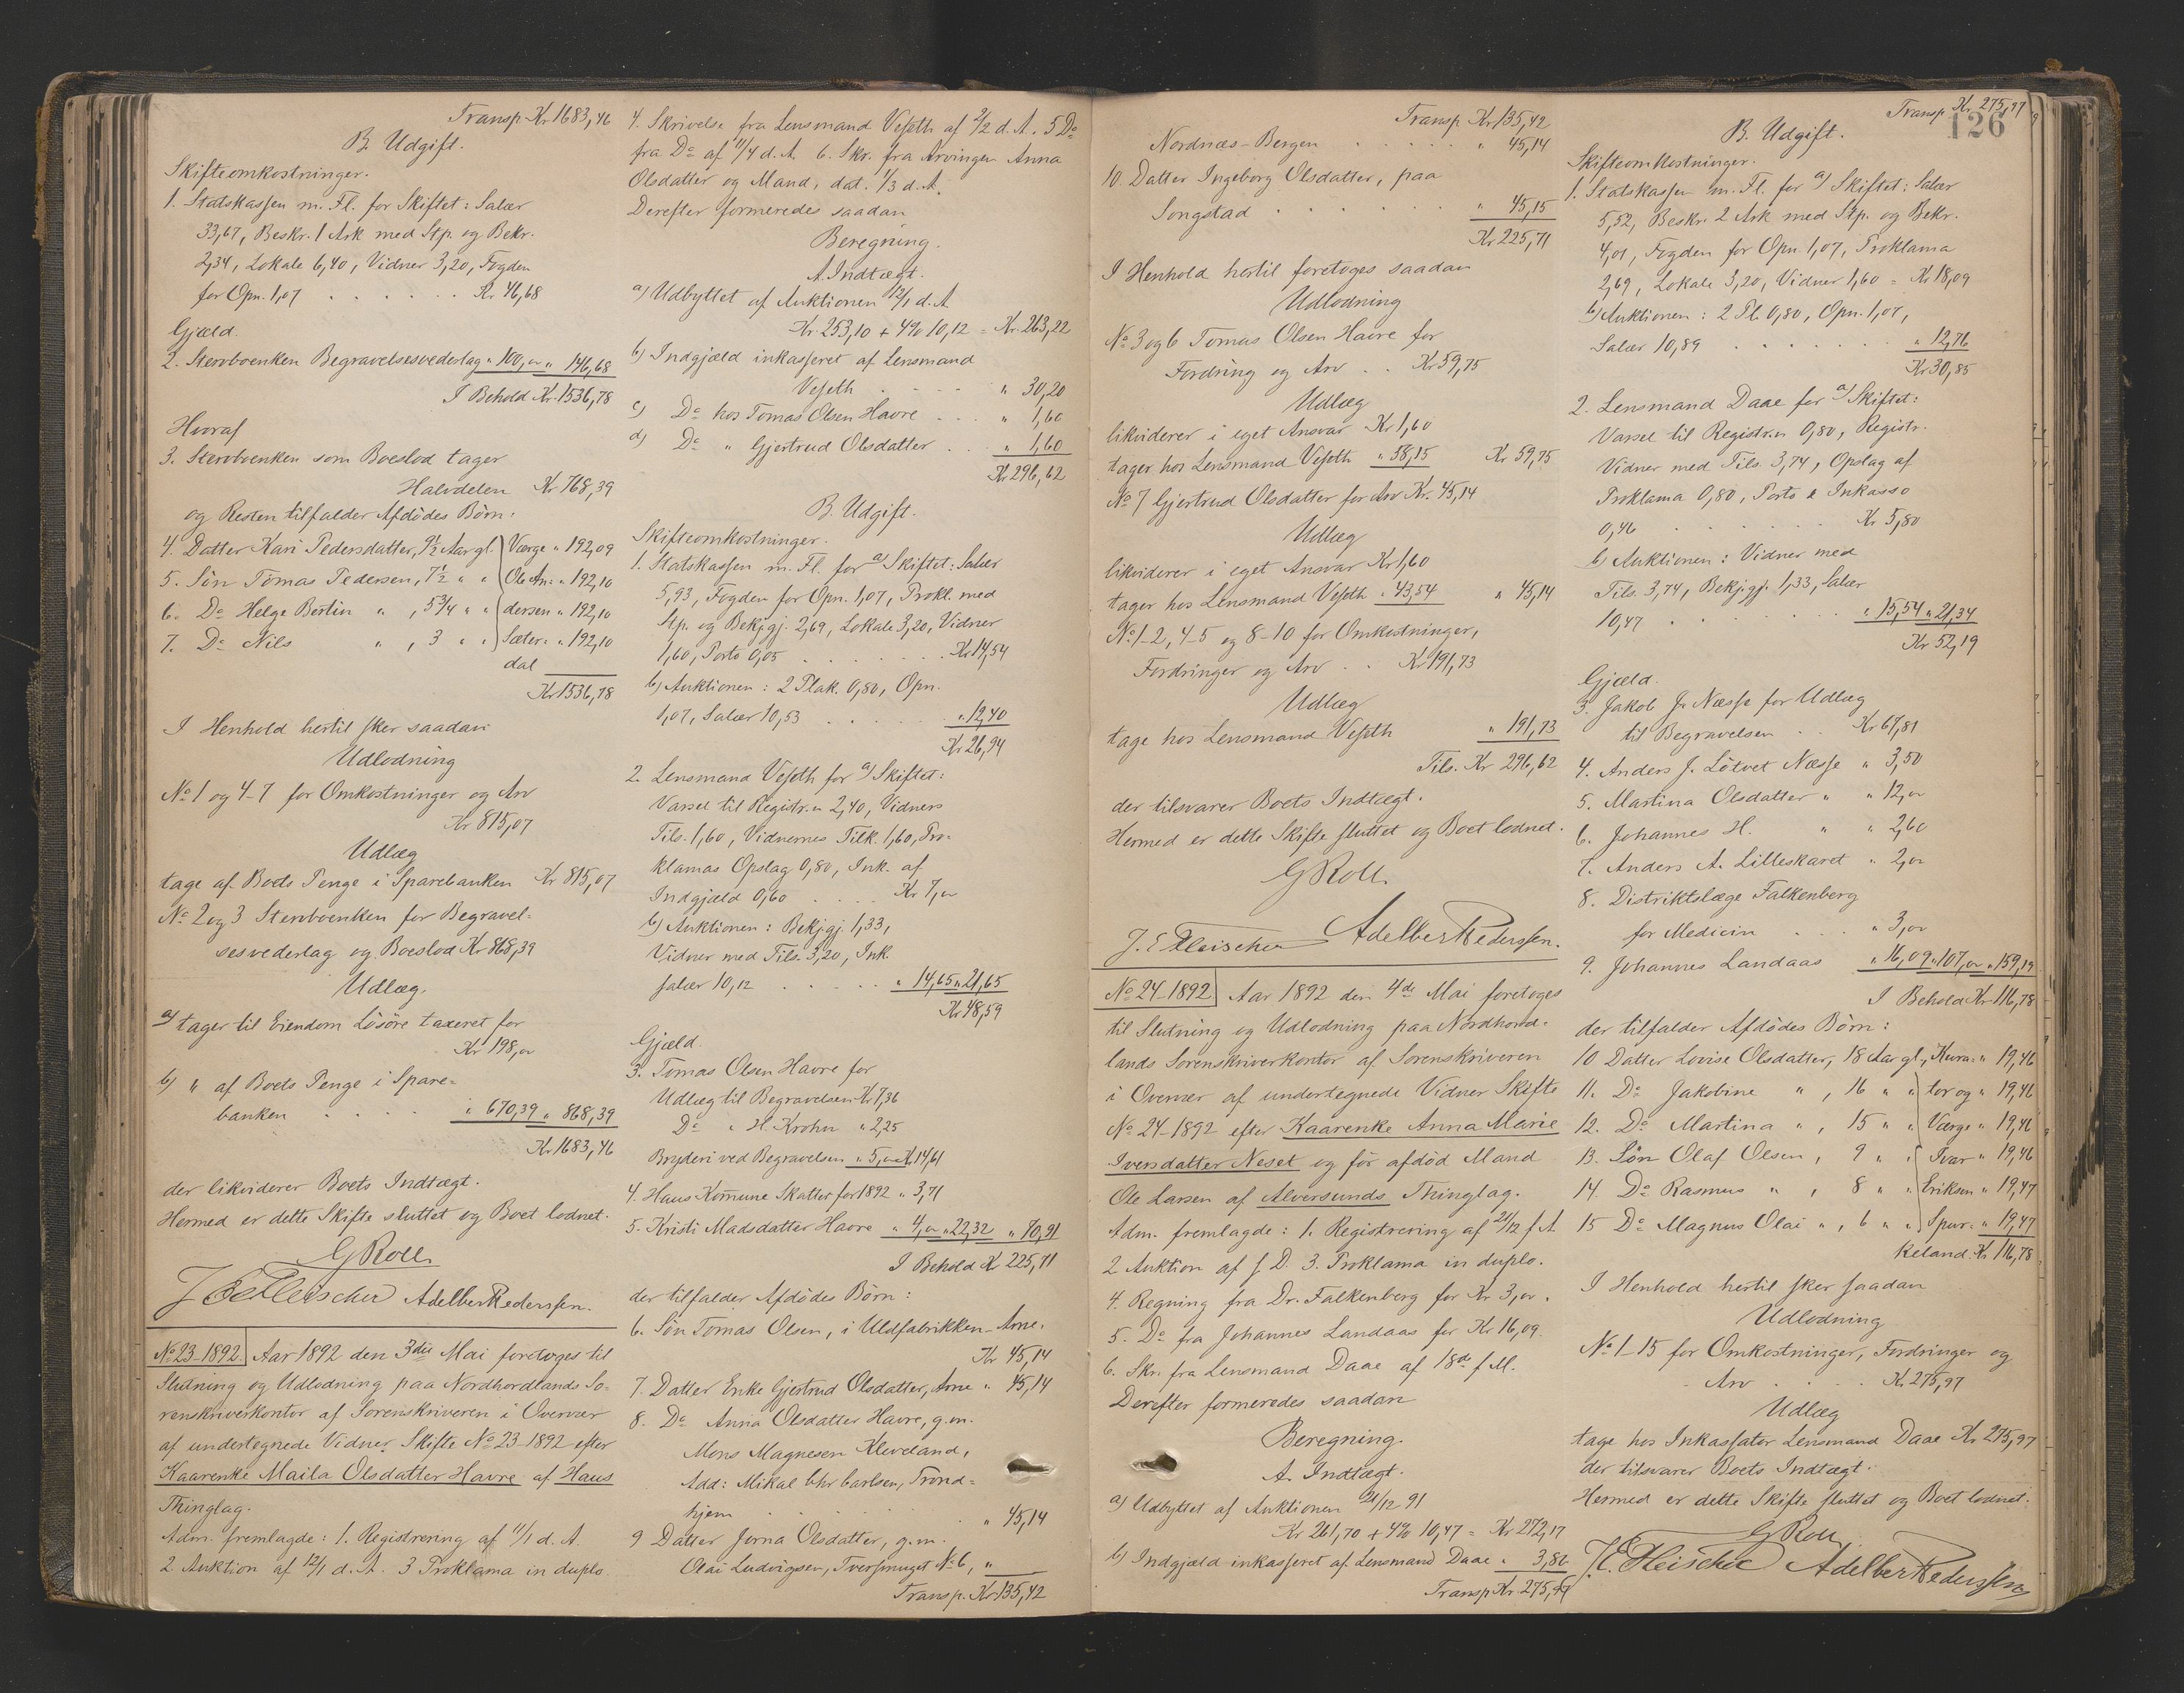 Transp. Kr 1683,46
B. Udgift.
Skifteomkostninger.
1. Statskassen m. Fl. for Skiftet: Salær
33,67, Beskr. 1 Ark med Stp. og Bekr.
2,34, Lokale 6,40, Vidner 3,20, Fogden
for Opn. 1,07 . . . . . . Kr 46,68
Gjæld.
2. Stervboenken Begravelsesvederlag " 100,00 " 146,68
I Behold Kr. 1536,78
Hvoraf
3. Stervboenken som Boeslod tager
Halvdelen Kr 768,39
og Resten tilfalder Afdödes Börn:
4. Datter Kari Pedersdatter, 9½ Aar gl. Værge " 192,09
5. Sön Tomas Pedersen, 7½ " " Ole An= " 192,10
6. Do Helge Bertin " , 5¾ " " dersen " 192,10
7. Do Nils " , 3 " " Sæter= " 192,10
dal
Kr 1536,78
I Henhold hertil sker saadan
Udlodning
No 1 og 4-7 for Omkostninger og Arv
Kr 815,07
Udlæg
tage af Boets Penge i Sparebanken Kr 815,07
No 2 og 3 Stervboenken for Begravel=
sesvederlag og Boeslod Kr 868,39
Udlæg.
a) tager til Eiendom Lösöre taxeret for
Kr 198,00
b) " af Boets Penge i Spare=
banken . . . . " 670,39 " 868,39
Kr 1683,46
der likviderer Boets Indtægt.
Hermed er dette Skifte sluttet og Boet lodnet.
G Roll
J E Fleischer Adelber Pederssen.
No 23-1892. Aar 1892 den 3die Mai foretoges til
Slutning og Udlodning paa Nordhordlands So=
renskriverkontor af Sorenskriveren i Overvær
af undertegnede Vidner Skifte No 23-1892 efter
Kaarenke Maila Olsdatter Havre af Haus
Thinglag.
Adm. fremlagde: 1. Registrering af 11/1 d. A.
2 Auktion af 12/1 d. A. 3 Proklama in duplo
4. Skrivelse fra Lensmand Veseth af 2/2 d. A. 5 Do
fra Do af 11/4 d. A. 6. Skr. fra Arvingen Anna
Olsdatter og Mand, dat. 1/3 d. A.
Derefter formeredes saadan
Beregning.
A. Indtægt.
a) Udbyttet af Auktionen 12/1 d. A
Kr. 253,10 + 4% 10,12 = Kr. 263,22
b) Indgjæld inkasseret af Lensmand
Veseth . . . . " 30,20
c) Do hos Tomas Olsen Havre . . " 1,60
d) Do " Gjertrud Olsdatter . . " 1,60
Kr 296,62
B. Udgift.
Skifteomkostninger.
1. Statskassen m. Fl. for a) Skiftet: Salær
5,93, Fogden for Opn. 1,07, Prokl. med
Stp. og Bekjgj. 2,69, Lokale 3,20, Vidner
1,60, Porto 0,05 . . . . . . Kr 14,54
b) Auktionen: 2 Plak. 0,80, Opn.
1,07, Salær 10,53 . . . . " 12,40
Kr 26,94
2. Lensmand Veseth for a) Skiftet:
Varsel til Registr.en 2,40, Vidners
Tils. 1,60, Vidnernes Tilk. 1,60, Pro=
klamas Opslag 0,80, Ink. af
Indgjæld 0,60 . . . . Kr 7,00
b) Auktionen: Bekjgj. 1,33,
Vidner med Tils. 3,20, Ink.
salær 10,12 . . . . . " 14,65 " 21,65
Kr 48,59
Gjæld.
3. Tomas Olsen Havre for
Udlæg til Begravelsen Kr 7,36
Do " H. Krohn " 2,25
Bryderi ved Begravelsen " 5,00 Kr 14,61
4. Haus Kommune Skatter for 1892 " 3,71
5. Kristi Madsdatter Havre " 4,00 " 22,32 " 70,91
I Behold Kr 225,71
der tilfalder Afdödes Börn:
6. Sön Tomas Olsen, i Uldfabrikken - Arne.
Kr 45,14
7. Datter Enke Gjertrud Olsdatter, Arne " 45,14
8. Do Anna Olsdatter Havre, g. m.
Mons Magnesen Kleveland,
Add: Mikal Chr Carlsen, Trond=
hjem . . . . . . " 45,14
9 Datter Jorna Olsdatter, g. m.
Olai Ludvigsen, Tversmuget No 6, "
Transp. Kr 135,42
Transp Kr 135,42
Nordnæs - Bergen . . . . . " 45,14
10. Datter Ingeborg Olsdatter, paa
Songstad . . . . . . . " 45,15
Kr 225,71
I Henhold hertil foretoges saadan
Udlodning
No 3 og 6 Tomas Olsen Havre for
Fordring og Arv . . Kr 59,75
Udlæg
likviderer i eget Ansvar Kr 1,60
tager hos Lensmand Veseth " 58,15 Kr 59,75
No 7 Gjertrud Olsdatter for Arv Kr. 45,14
Udlæg
likviderer i eget Ansvar Kr 1,60
tager hos Lensmand Veseth " 43,54 " 45,14
No 1-2, 4-5 og 8-10 for Omkostninger,
Fordringer og Arv . . Kr 191,73
Udlæg
tage hos Lensmand Veseth " 191,73
Tils. Kr 296,62
der tilsvarer Boets Indtægt.
Hermed er dette Skifte sluttet og Boet lodnet.
G Roll.
J. E Fleischer Adelber Pederssen.
No 24-1892 Aar 1892 den 4de Mai foretoges
til Slutning og Udlodning paa Nordhord=
lands Sorenskriverkontor af Sorenskriveren
i Overvær af undertegnede Vidner Skifte
No 24-1892 efter Kaarenke Anna Marie
Iversdatter Neset og för afdöd Mand
Ole Larsen af Alversunds Thinglag.
Adm. fremlagde: 1. Registrering af 21/12 f. A.
2 Auktion af s. D. 3. Proklama in duplo.
4. Regning fra Dr. Falkenberg for Kr 3,00.
5. Do fra Johannes Landaas for Kr 16,09.
6. Skr. fra Lensmand Daae af 18de f. M.
Derefter formeredes saadan
Beregning.
A. Indtægt.
a) Udbyttet af Auktionen 21/12 91
Kr 261,70 + 4% 10,47 = Kr 272,17
b) Indgjæld inkasseret af Lensmand Daae " 3,80
Transp Kr. 275,97
Transp Kr. 275,97
126
B. Udgift.
Skifteomkostninger.
1. Statskassen m. Fl. for a) Skiftet: Salær
5,52, Beskr. 2 Ark med Stp. og Bekr.
4,01, Fogden for Opn. 1,07, Proklama
2,69, Lokale 3,20, Vidner 1,60 = Kr 18,09
b) Auktionen: 2 Pl. 0,80, Opn. 1,07,
Salær 10,89 . . . . . . . " 12,76
Kr 30,85
2. Lensmand Daae for a) Skiftet:
Varsel til Registr.en 0,80, Registr.
Vidner med Tils. 3,74, Opslag af
Proklama 0,80, Porto & Inkasso
0,46 . . . . . . Kr 5,80
b) Auktionen: Vidner med
Tils. 3,74, Bekjgj. 1,33, Salær
10,47 . . . . . . " 15,54 " 21,34
Kr 52,19
Gjæld.
3. Jakob J. Næsse for Udlæg
til Begravelsen . . Kr 67,81
4. Anders J. Lötvet Næsse " 3,50
5. Martina Olsdatter " " 12,00
6. Johannes H. " " 2,60
7. Anders A. Lilleskaret " 2,00
8. Distriktslæge Falkenberg
for Medicin . . . " 3,00
9. Johannes Landaas " 16,09 " 107,00 " 159,19
I Behold Kr 116,78
der tilfalder Afdödes Börn:
10 Datter Lovise Olsdatter, 18 Aar gl., Kura= " 19,46
11. Do Jakobine " , 16 " " tor og " 19,46
12. Do Martina " , 15 " " Værge " 19,46
13. Sön Olaf Olsen, 9 " " Ivar " 19,46
14. Do Rasmus " , 8 " " Eriksen " 19,47
15 Do Magnus Olai " , 6 " " Spur= " 19,47
keland. Kr 116,78
I Henhold hertil sker saadan
Udlodning
No 1-15 for Omkostninger, Fordringer og
Arv . . . . Kr. 275,97
Udlæg
tage hos Inkassator Lensmand Daae Kr 275,97
der tilsvarer Boets Indtægt.
Hermed er dette Skifte sluttet og Boet lodnet.
G Roll
J. E. Fleischer Adelber Pederssen